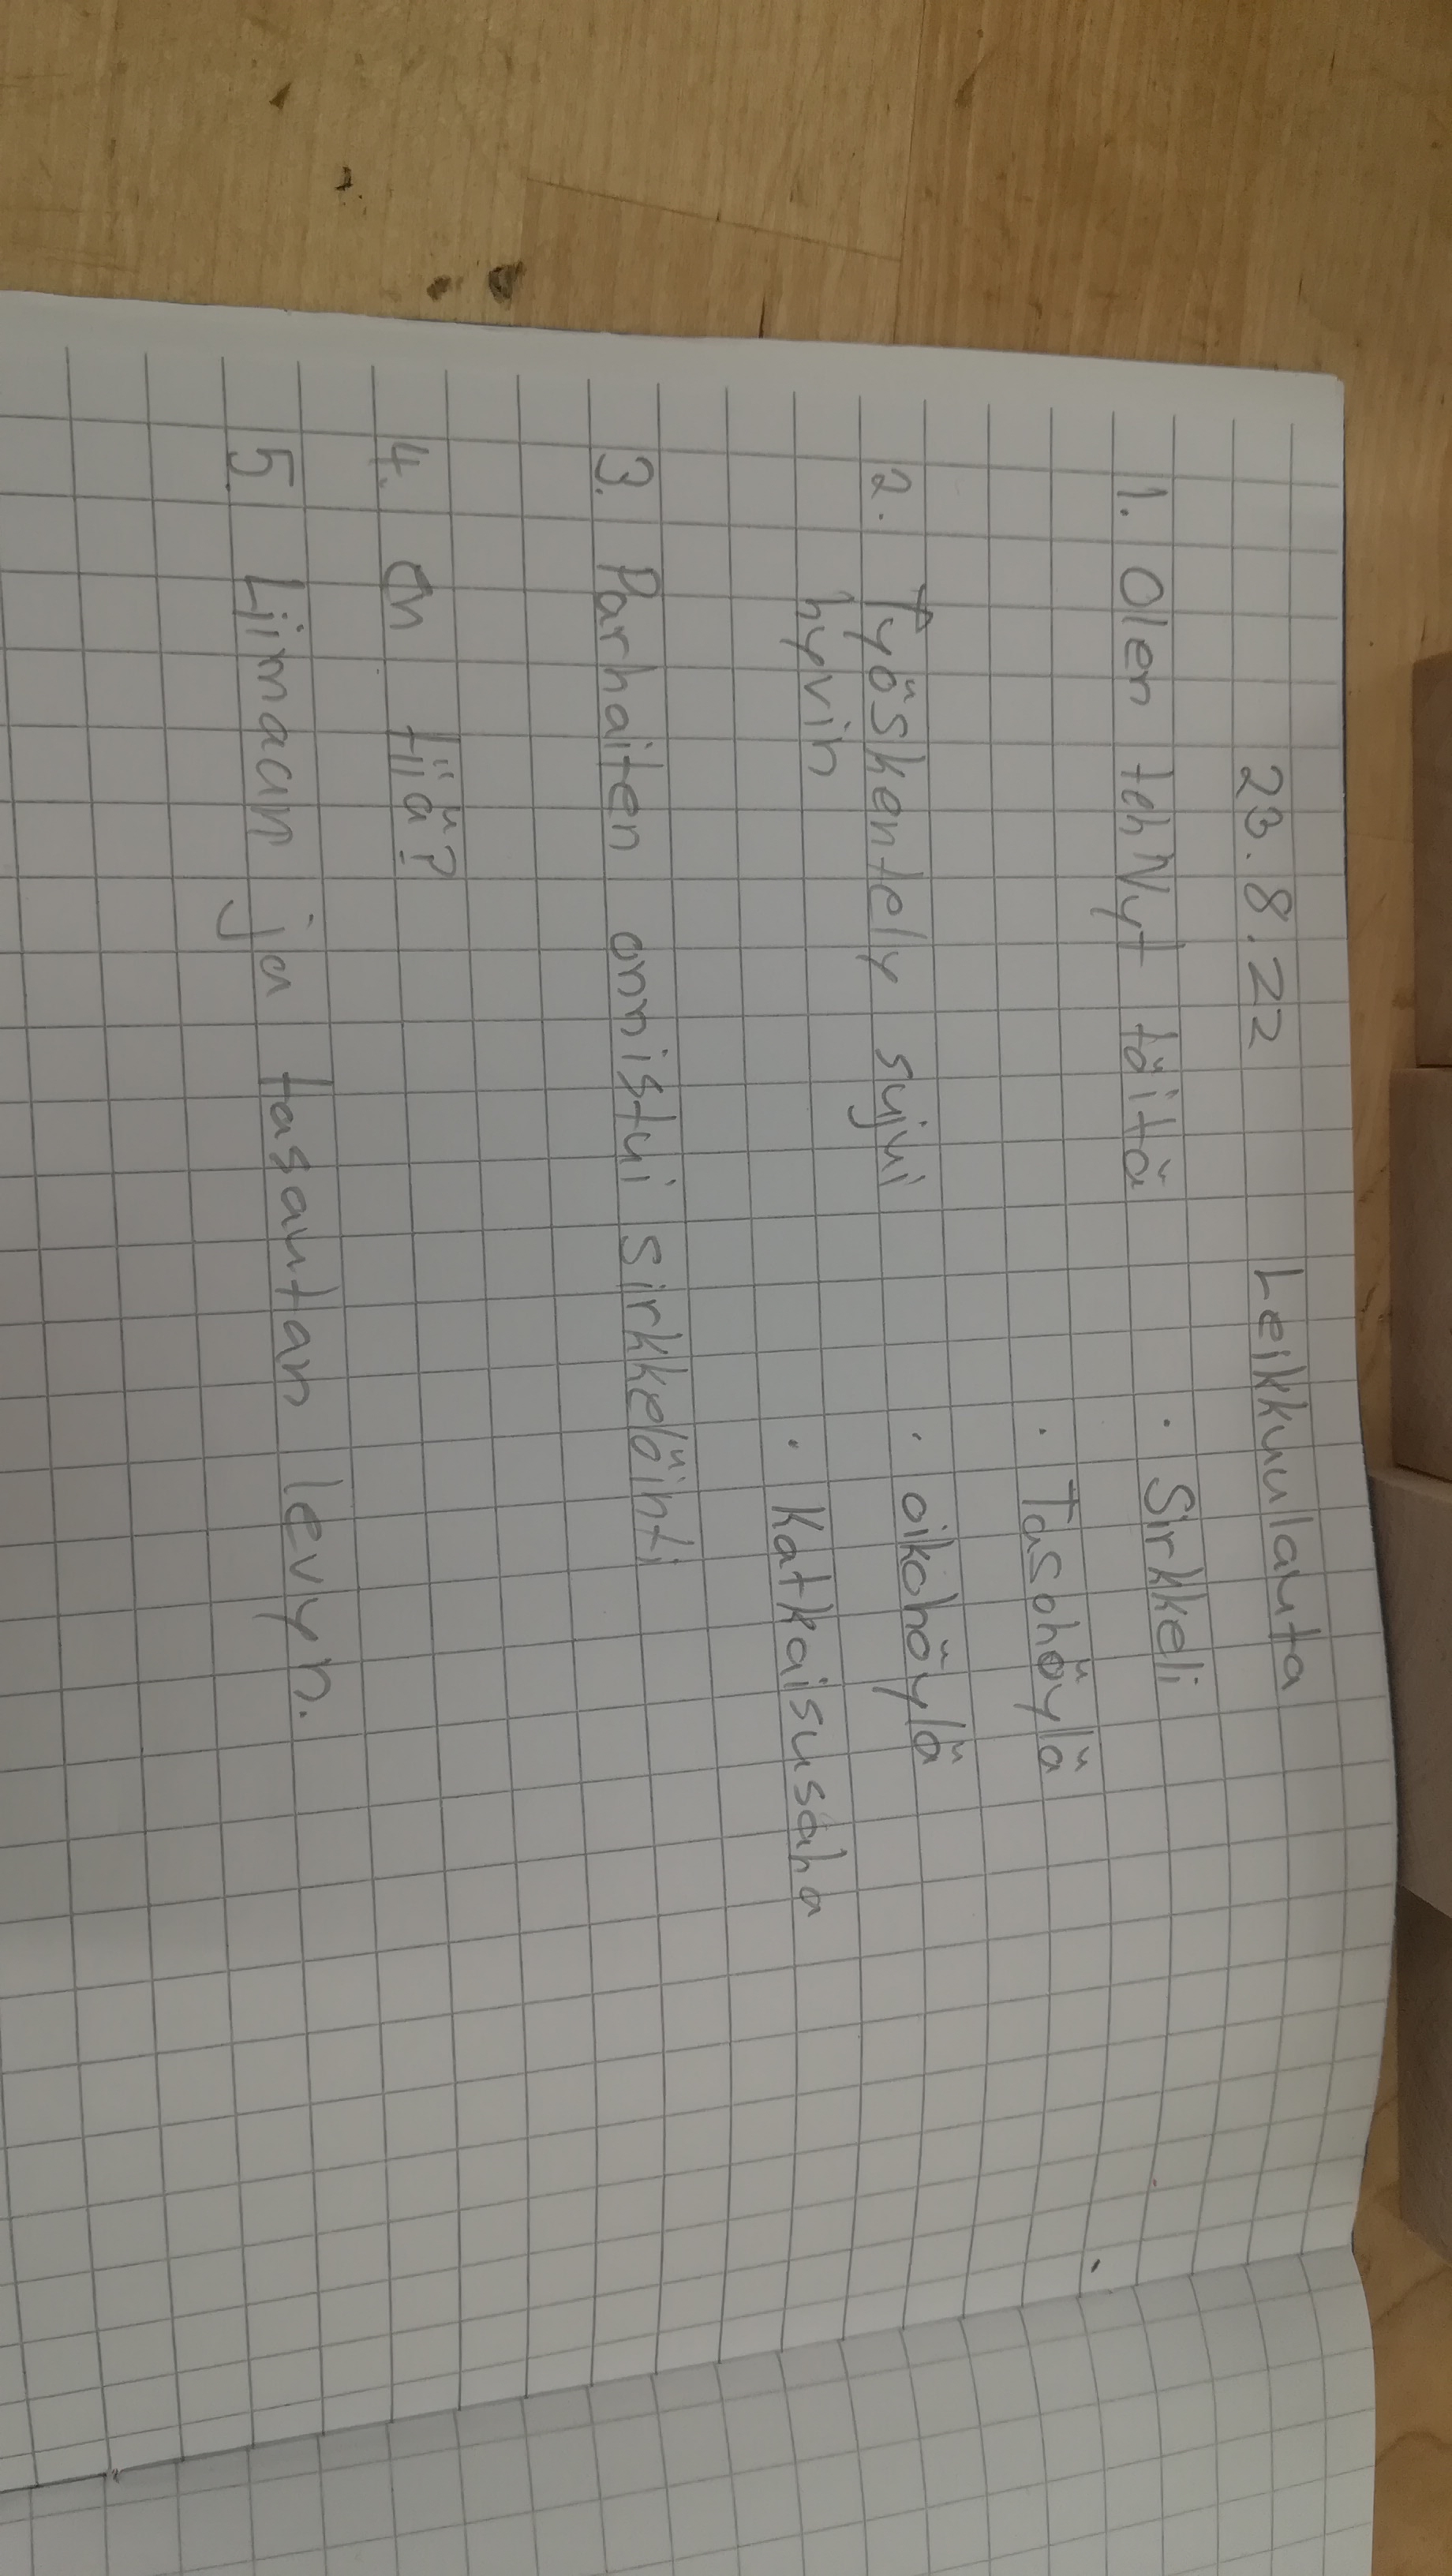 23.8.22 Leikkuulauta
1. Olen tehNyt töitä
• Sirkkeli
• Tasohöylä
2. Työskentely sujui
hyvin
• oikohöylä
• Katkaisusaha
3. Parhaiten onnistui sirkkelöinti
4. en tiiä?
5. Liimaan ja tasautan levyn.